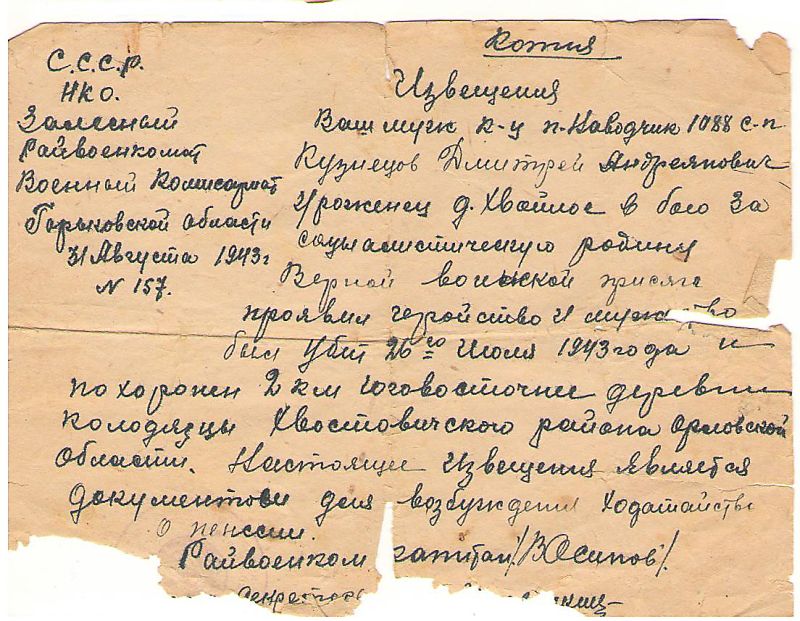 Копия
С.С.С.р.
НКО.
Залесный
Райвоенкомат
Военный Комисариат
Горьковской области
31 Августа 1943г
N 157.
Извещения
Ваш муж к-ц п-Наводчик 1088 с-п
Кузнецов Дмитрей Андреянович
Уроженец д. Хвойлос в бою За
социалистическую родину
Верной воинской присяге
проявил геройство и мужство
был Убит 26го Июля 1943 года и
похоронен 2 км Юговосточнее деревни
Колодязцы Хвостовичского района Орловской
области. Настоящее Извещения является
документом для возбуждения Ходатайств
о пенссии.
Райвоенком капитан /ВОсипов/.